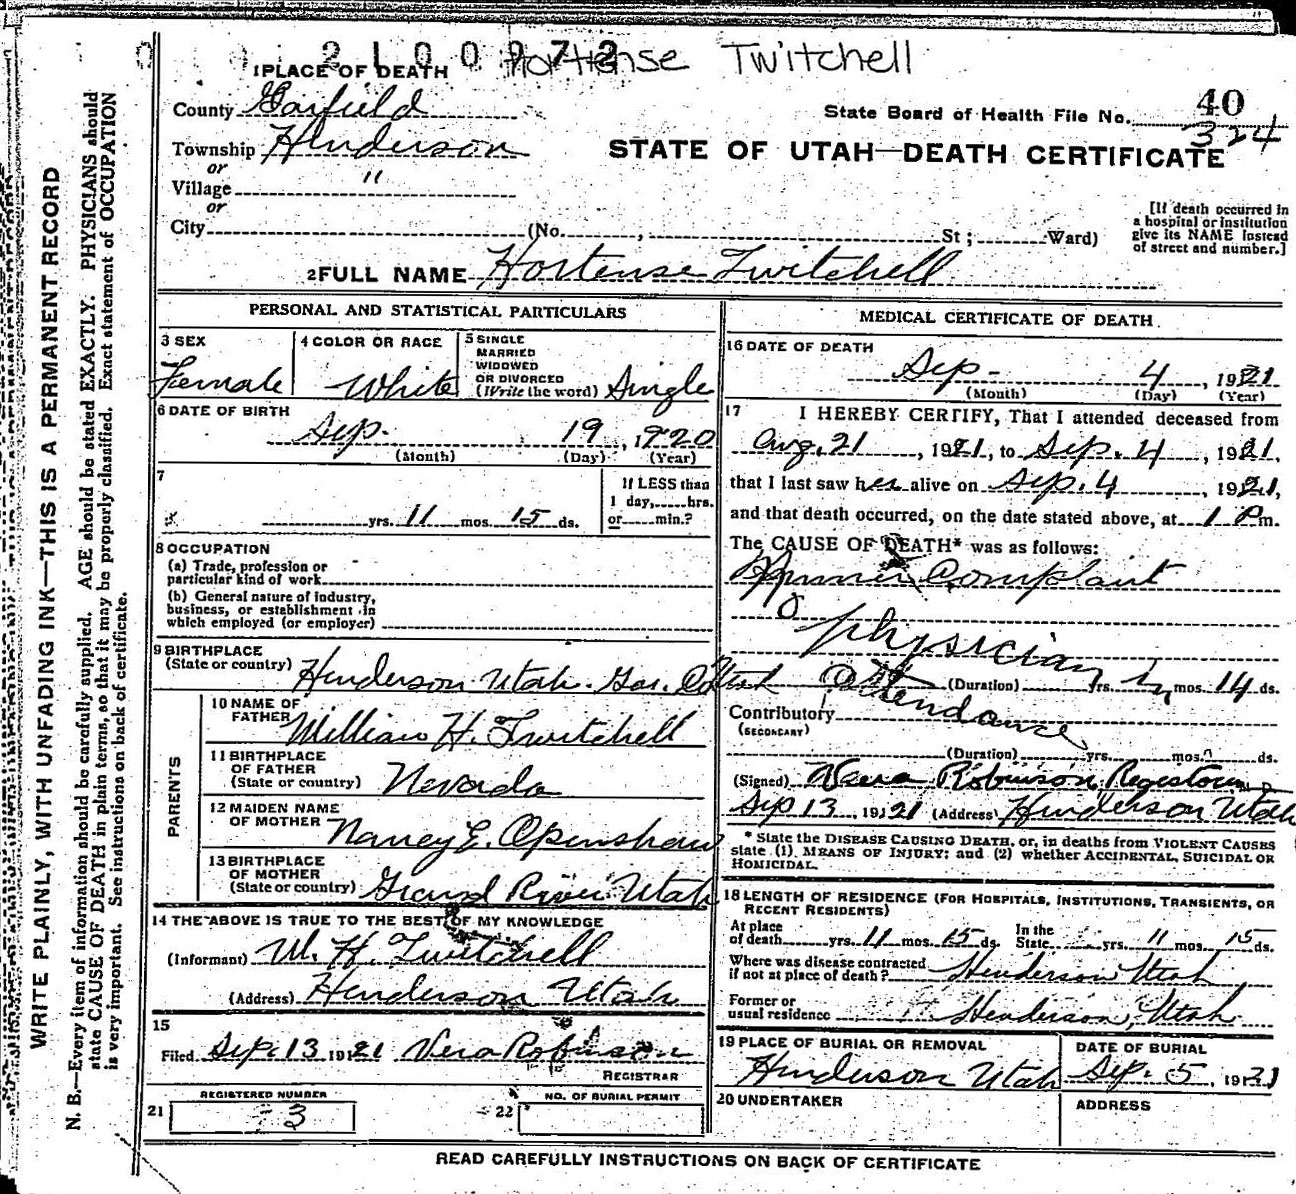 2100972 Hortense Twitchell
1 PLACE OF DEATH
County Garfield
State Board of Health File No. 40
324
Township Henderson
STATE OF UTAH—DEATH CERTIFICATE
or
Village "
or
City (No. , St; Ward)
[If death occurred in
a hospital or institution
give its NAME instead
of street and number.]
2 FULL NAME Hortense Twitchell
PERSONAL AND STATISTICAL PARTICULARS
3 SEX
Female
4 COLOR OR RACE
White
5 SINGLE
MARRIED
WIDOWED
OR DIVORCED
(Write the word) Single
6 DATE OF BIRTH
Sep. 19, 1920
(Month) (Day) (Year)
7
yrs. 11 mos. 15 ds.
If LESS than
1 day, hrs.
or min.?
8 OCCUPATION
(a) Trade, profession or
particular kind of work
(b) General nature of industry,
business, or establishment in
which employed (or employer)
9 BIRTHPLACE
(State or country) Henderson Utah. Gar. Co Utah
PARENTS
10 NAME OF
FATHER William H. Twitchell
11 BIRTHPLACE
OF FATHER
(State or country) Nevada
12 MAIDEN NAME
OF MOTHER Nancy E. Openshaw
13 BIRTHPLACE
OF MOTHER
(State or country) Grand River Utah
14 THE ABOVE IS TRUE TO THE BEST OF MY KNOWLEDGE
(Informant) W. H. Twitchell
(Address) Henderson Utah
15
Filed Sep. 13 1921 Vera Robinson
REGISTRAR
21 REGISTERED NUMBER
3
22 NO. OF BURIAL PERMIT
MEDICAL CERTIFICATE OF DEATH
16 DATE OF DEATH
Sep- 4, 1921
(Month) (Day) (Year)
17 I HEREBY CERTIFY, That I attended deceased from
Aug. 21, 1921, to Sep. 4, 1921,
that I last saw her alive on Sep. 4, 1921,
and that death occurred, on the date stated above, at 1 P m.
The CAUSE OF DEATH* was as follows:
Complaint
physician
in
attendance
(Duration) yrs. mos. 14 ds.
Contributory
(SECONDARY)
(Duration) yrs. mos. ds.
(Signed) Vera Robinson Registrar
Sep 13, 1921 (Address) Henderson Utah
* State the DISEASE CAUSING DEATH, or, in deaths from VIOLENT CAUSES
state (1) MEANS OF INJURY; and (2) whether ACCIDENTAL, SUICIDAL OR
HOMICIDAL.
18 LENGTH OF RESIDENCE (FOR HOSPITALS, INSTITUTIONS, TRANSIENTS, OR
RECENT RESIDENTS)
At place
of death yrs. 11 mos. 15 ds.
In the
State yrs. 11 mos. 15 ds.
Where was disease contracted
if not at place of death? Henderson Utah
Former or
usual residence Henderson, Utah
19 PLACE OF BURIAL OR REMOVAL
Henderson Utah
DATE OF BURIAL
Sep. 5, 1921
20 UNDERTAKER
ADDRESS
READ CAREFULLY INSTRUCTIONS ON BACK OF CERTIFICATE
WRITE PLAINLY, WITH UNFADING INK—THIS IS A PERMANENT RECORD
N. B.—Every item of information should be carefully supplied. AGE should be stated EXACTLY. PHYSICIANS should
state CAUSE OF DEATH in plain terms, so that it may be properly classified. Exact statement of OCCUPATION
is very important. See instructions on back of certificate.